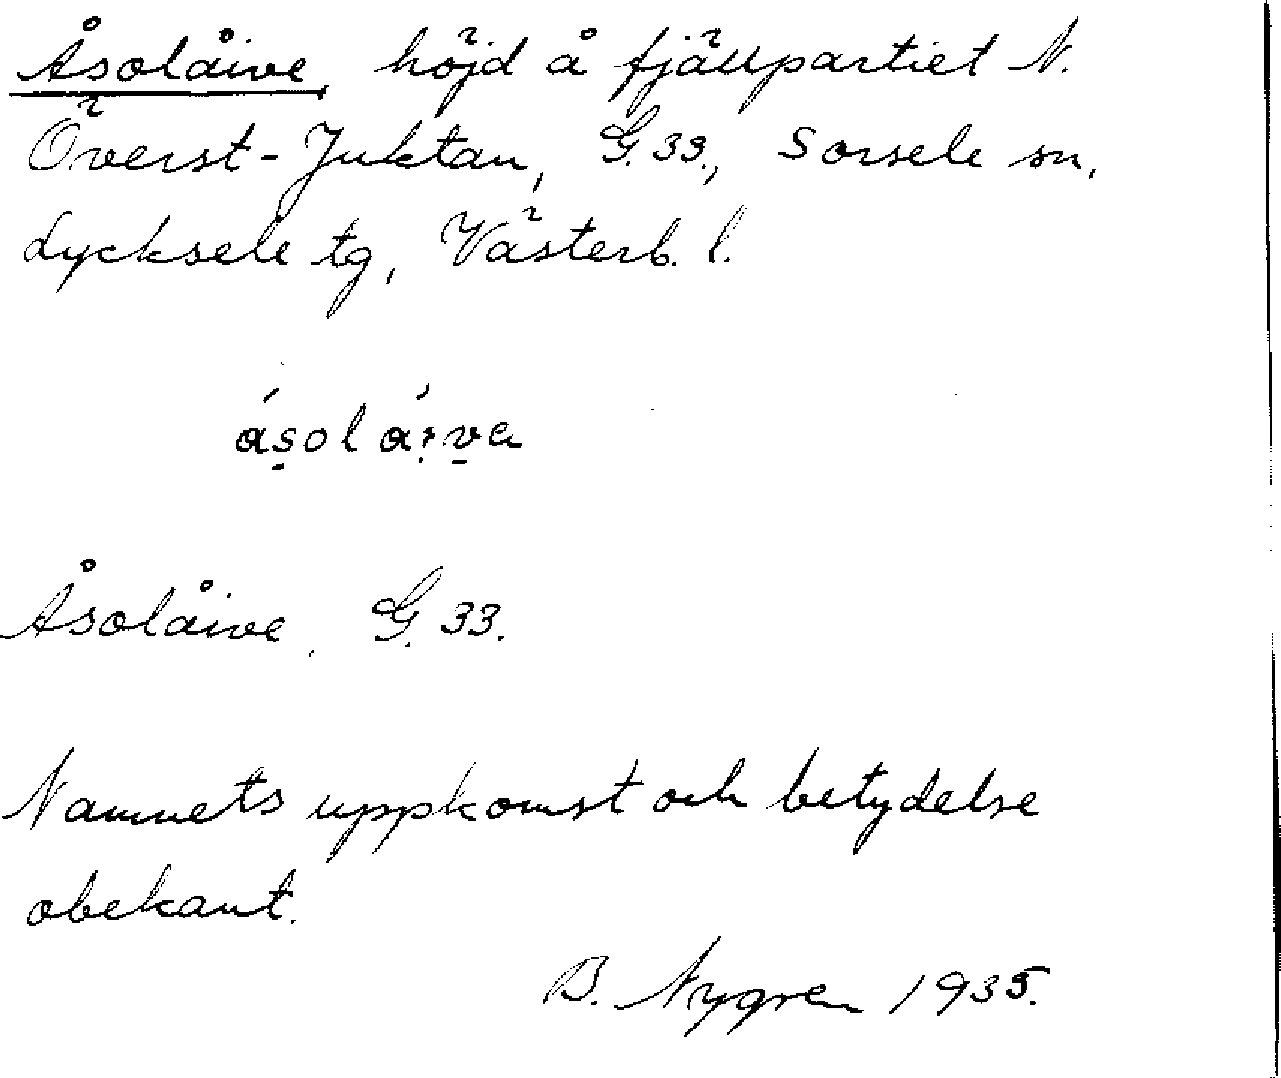 Åsolåive, höjd å fjällpartiet N.
Överst-Juktan, G.33., Sorsele sn,
Lycksele tg, Västerb. l.
Åsolåive, G.33.
Namnets uppkomst och betydelse
obekant.
B. Nygren 1935.